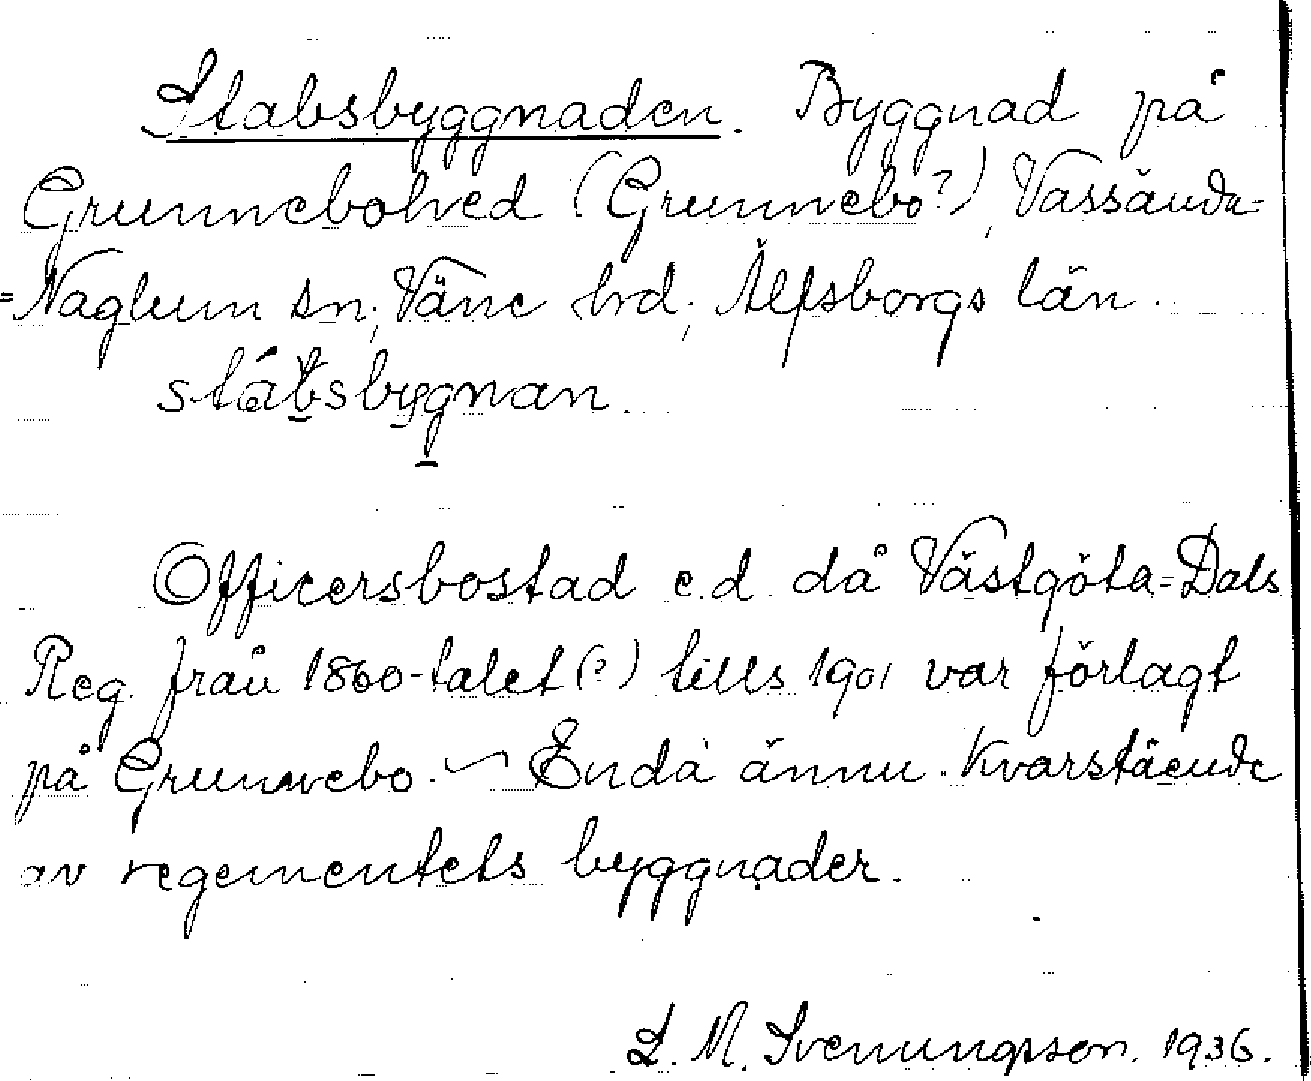 Stabsbyggnaden. Byggnad på
Grunnebohed (Grunnebo?), Vassända-
=Naglum sn, Väne hrd, Älfsborgs län.
stábsbygnan.
Officersbostad e.d. då Västgöta=Dals
Reg. från 1860-talet(?) tills 1901 var förlagt
på Grunnebo. ~ Enda ännu kvarstående
av regementets byggnader.
L. M. Svenungsson. 1936.